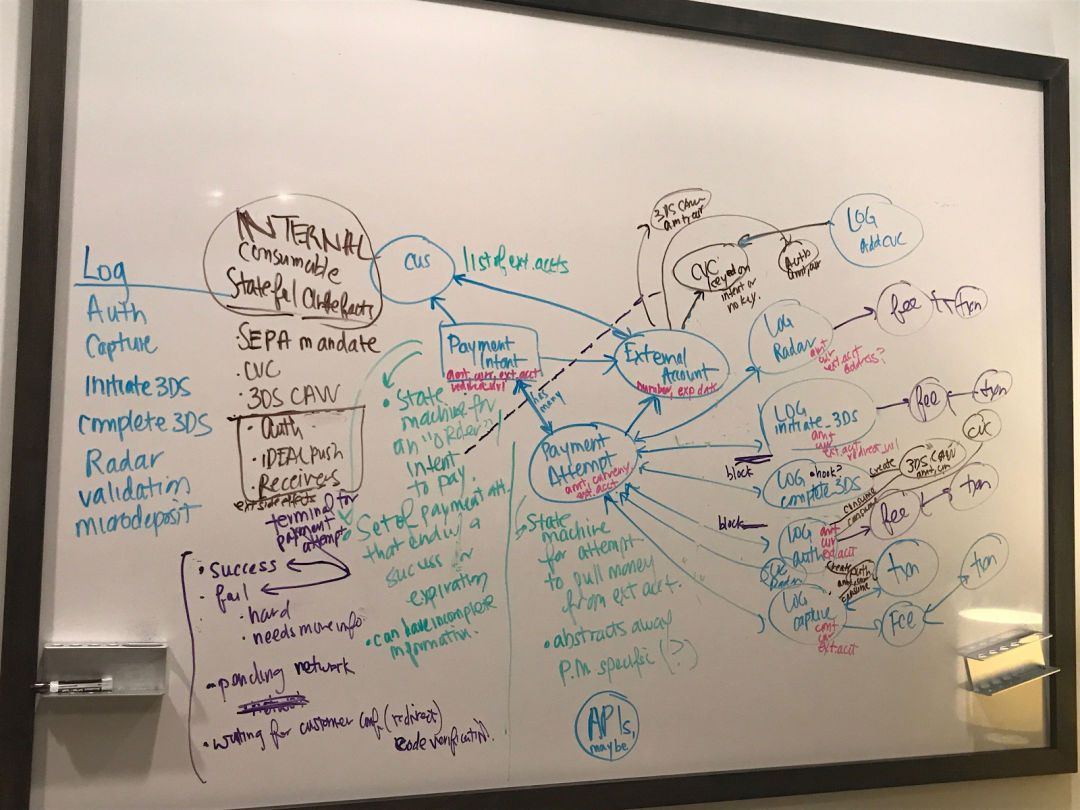 Log
Auth
Capture
Initiate 3DS
complete 3DS
Radar
validation
microdeposit
INTERNAL
Consumable
Stateful Artefacts
SEPA mandate
· CVC
· 3DS CAVV
· Auth
· IDEAL push
Receivers
ext side effects
terminal for
payment
attempt
• success
• fail
• hard
• needs more info
• pending network
• waiting for customer conf. (redirect)
code verification
cus
list of ext. accts
Payment
Intent
amt, curr, ext. acct
redirect url
has
many
• State
machine for
an "order"/
Intent
to pay.
Set of payment att.
that end in a
success or
expiration
• can have incomplete
information.
External
Account
number, exp date
Payment
Attempt
amt, currency,
ext. acct
State
machine
for attempt
to pull money
from ext acct.
• abstracts away
P.M specific (?)
APIs,
maybe
3DS CAVV
amt, cur
CVC
keyed on
intent or
no key.
Auth
amt, cur
LOG
Add CVC
LOG
Radar
amt
cur
ext. acct
address?
fee
txn
LOG
initiate_3DS
amt
cur
ext. acct
redirect_url
fee
txn
block
LOG • hook?
complete_3DS
create
3DS CAVV
amt, cur
cvc
consume
consume
block
LOG
auth
amt
cur
ext. acct
fee
txn
CVC
Radar
create
auth
consume
txn
LOG
capture
amt
cur
ext. acct
Fee
txn